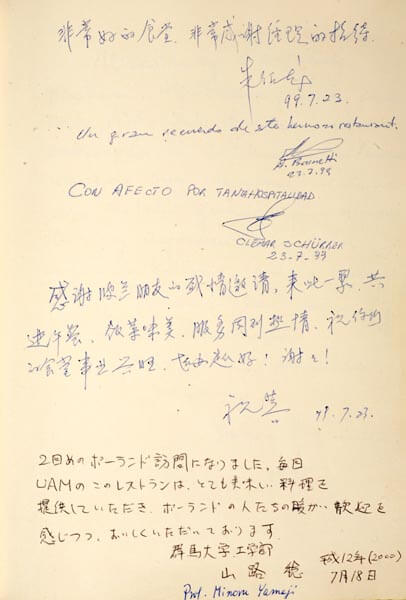 非常好的食堂、非常感谢经理的招待.
99.7.23.
Un gran recuerdo de este hermoso restaurant.
23-7-99
CON AFECTO POR TANA HOSPITALIDAD
CLEMAR SCHÜRRER
23-7-99
感谢波兰朋友的盛情邀请,来此一聚,共
进午餐、饭菜味美、服务周到热情、祝你们
的食堂事业兴旺、越办越好!谢谢!
99.7.23.
2回めのポーランド訪問になりました。毎日
UAMのこのレストランは、とても美味しい料理を
提供していただき、ポーランドの人たちの暖かい歓迎を
感じつつ、おいしくいただいております。
群馬大学工学部
山路 稔 平成12年(2000)
7月18日
Prof. Minoru Yamaji